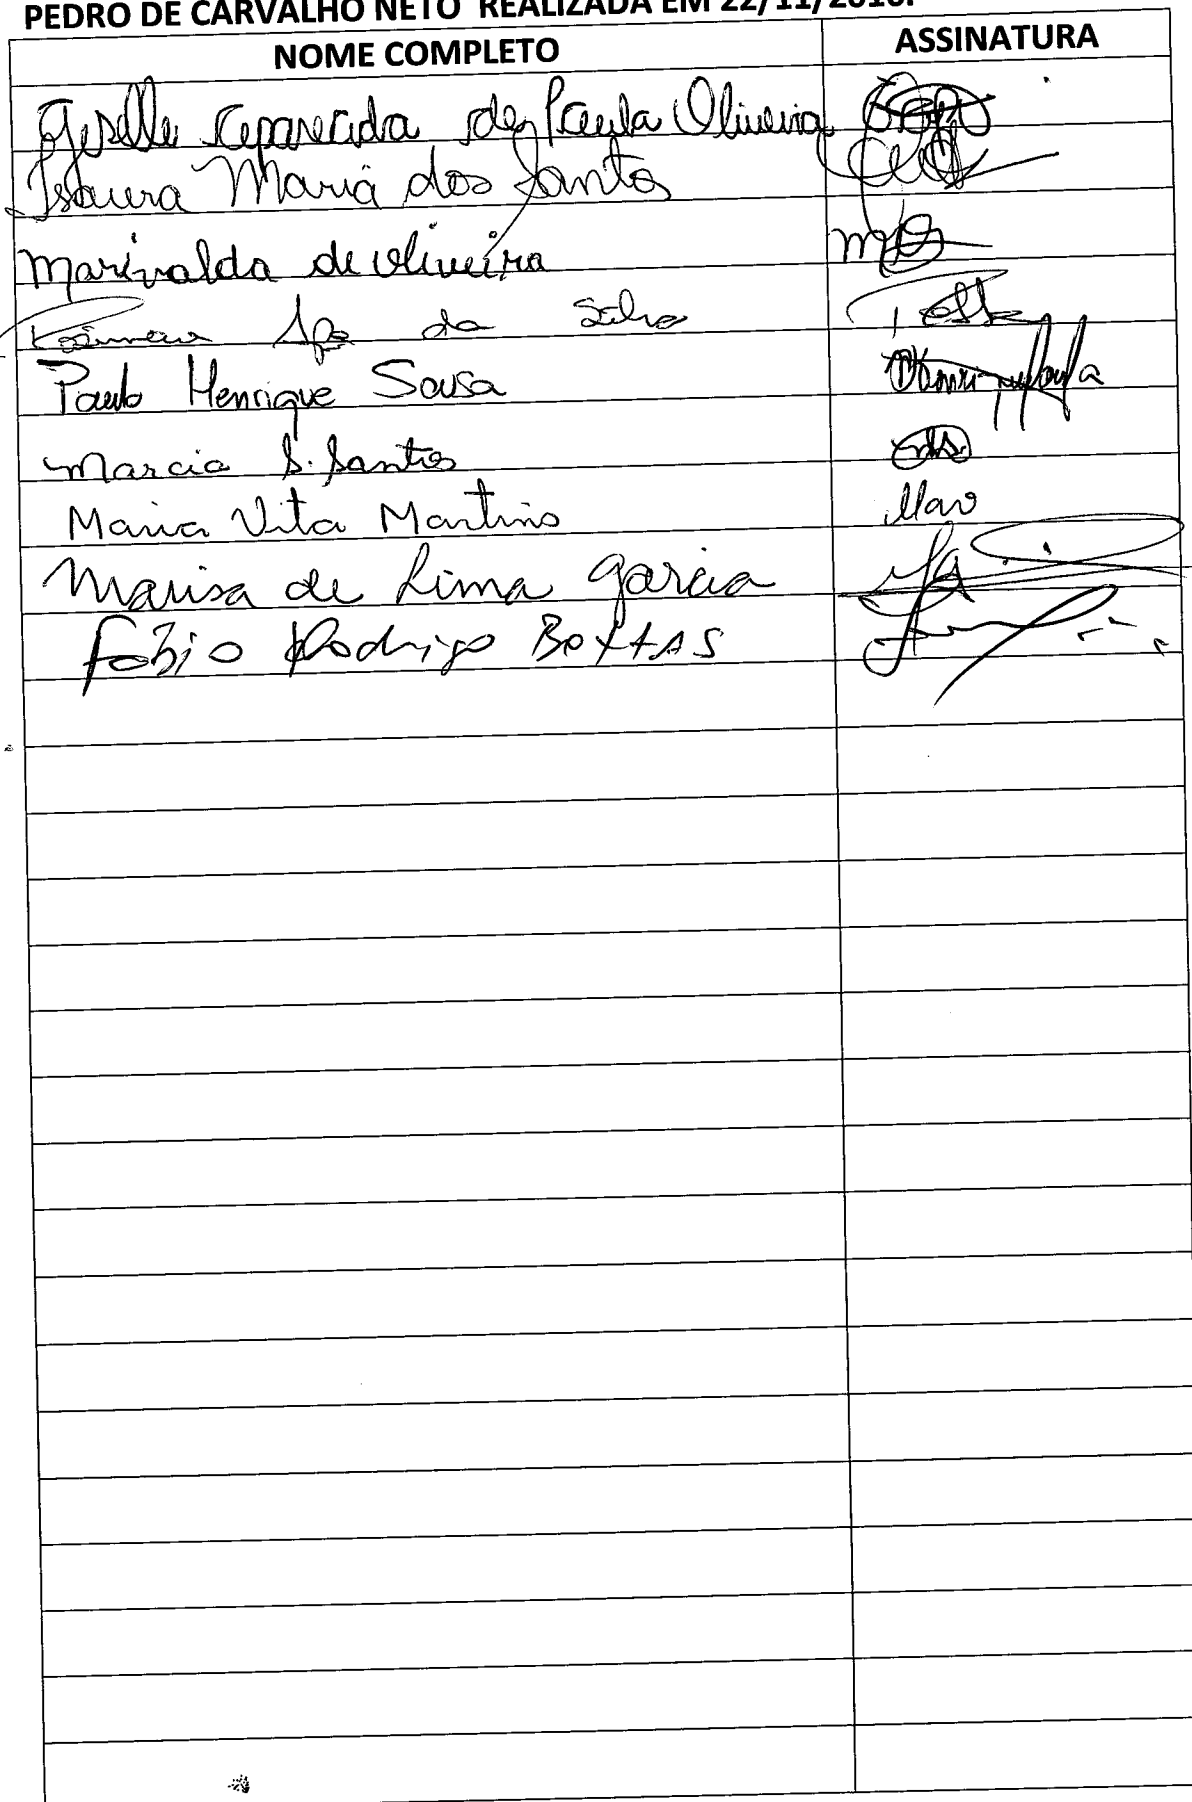 PEDRO DE CARVALHO NETO REALIZADA EM 22/11/2016.
NOME COMPLETO ASSINATURA
Giselle Aparecida de Paula Oliveira
Isaura Maria dos Santos
Marivalda de Oliveira
Apª da Silva
Paulo Henrique Sousa
Marcia S. Santos
Maria Vita Martins Mav
Marisa de Lima Garcia
Fabio Rodrigo